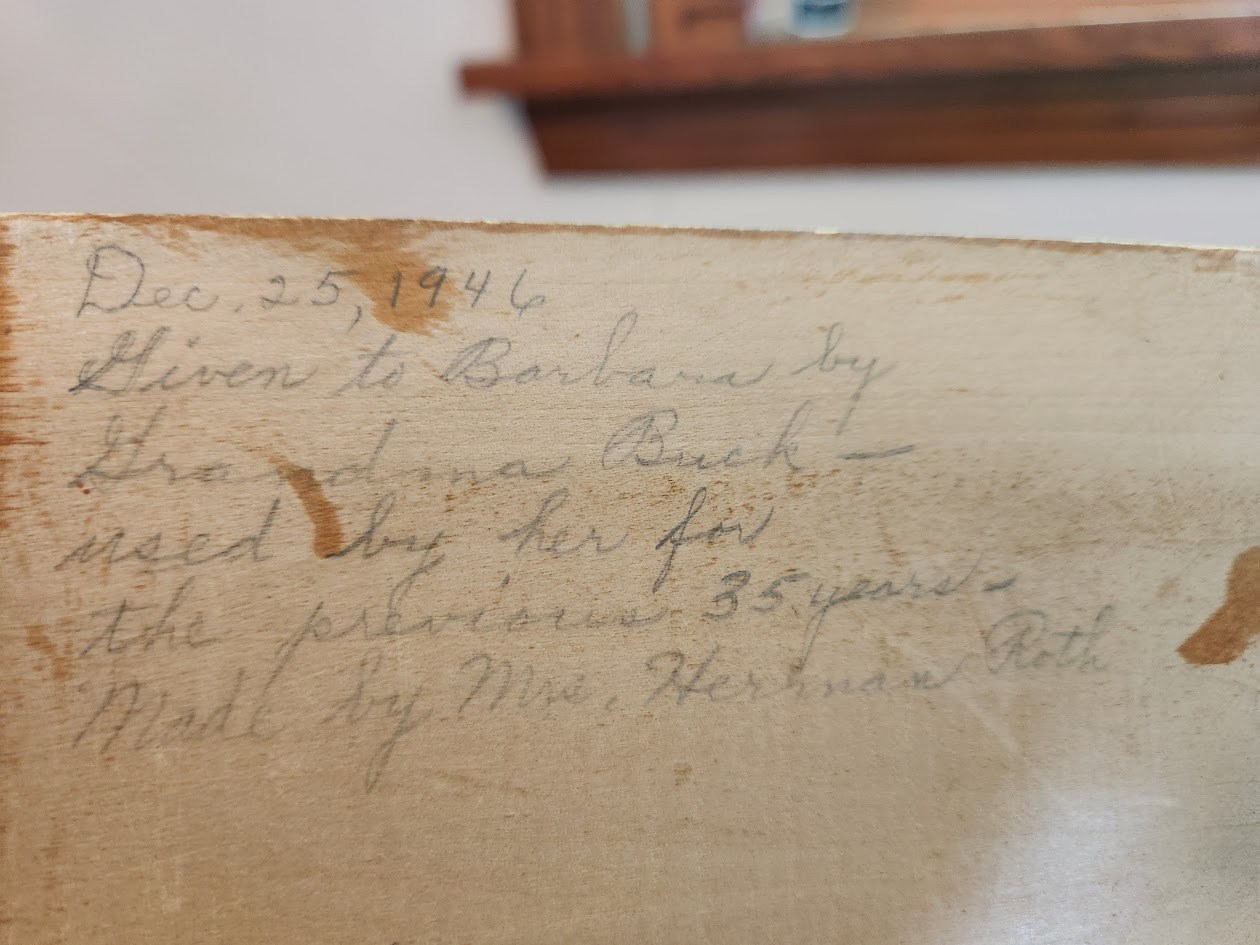 Dec. 25, 1946
Given to Barbara by
Grandma Buck –
used by her for
the previous 35 years –
Made by Mrs. Herman Roth